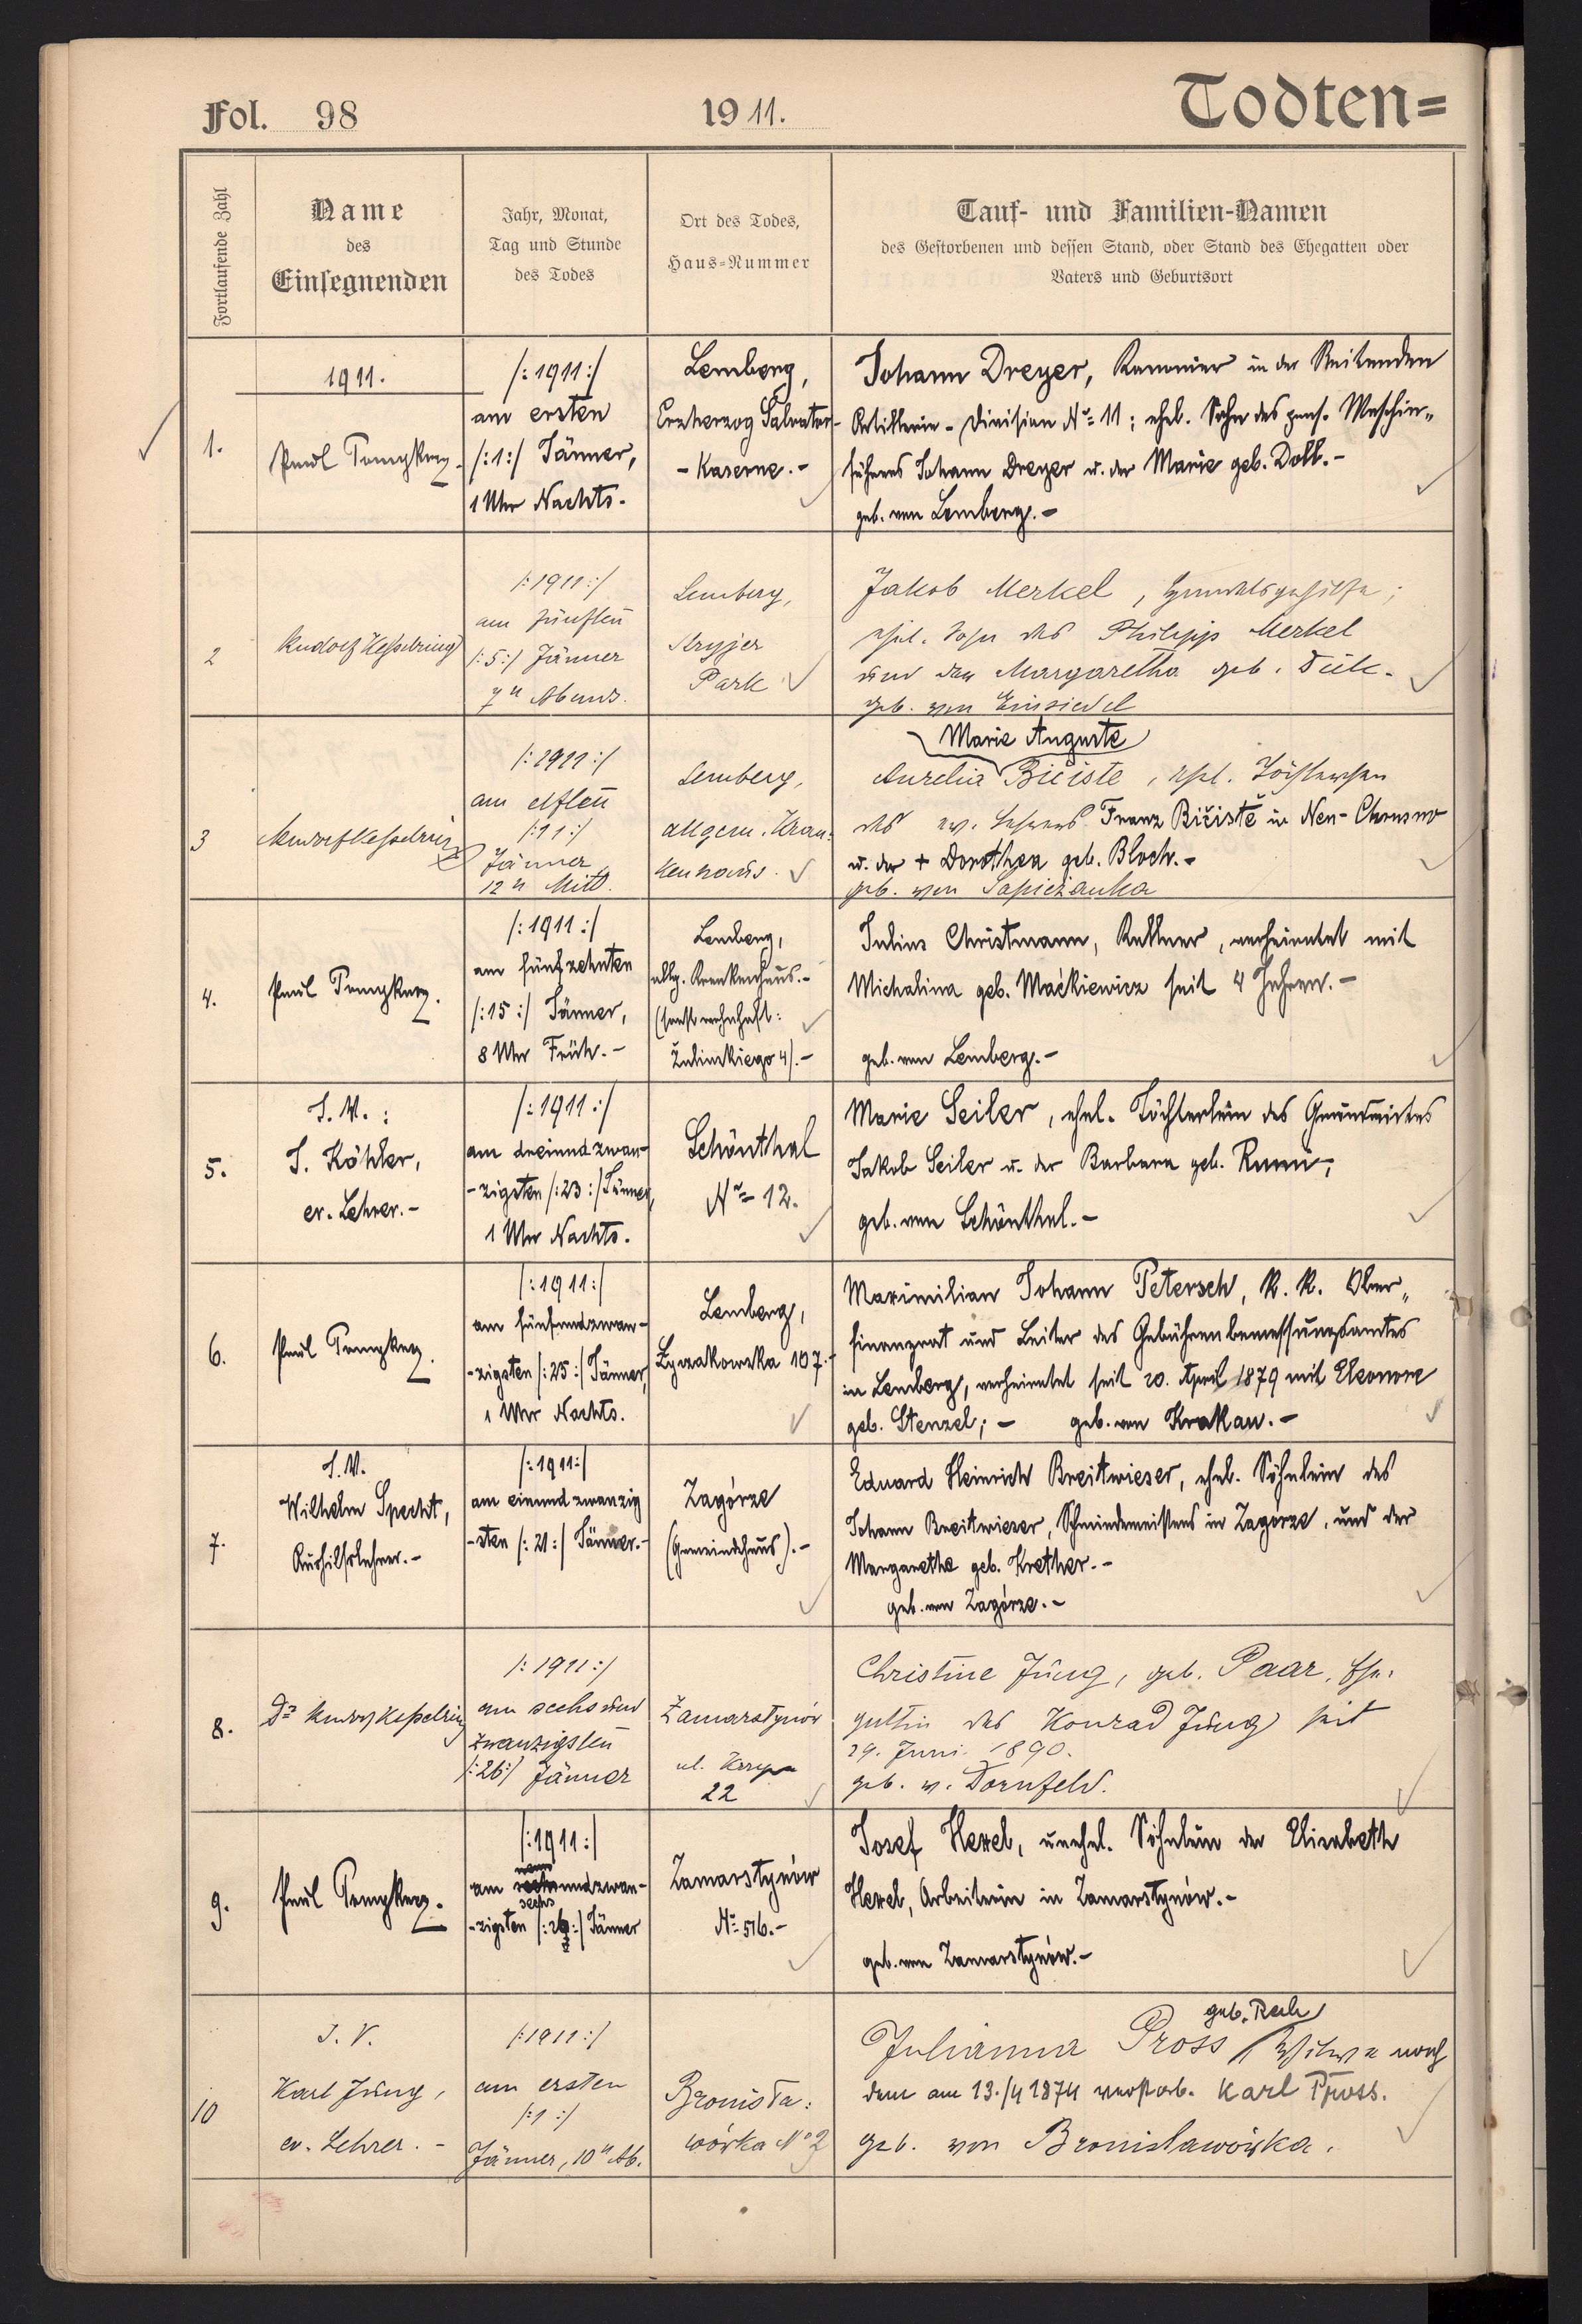 Fol. 98
1911.
Todten=
Fortlaufende Zahl
Name
des
Einsegnenden
Jahr, Monat,
Tag und Stunde
des Todes
Ort des Todes,
Haus-Nummer
Tauf- und Familien-Namen
des Gestorbenen und dessen Stand, oder Stand des Ehegatten oder
Vaters und Geburtsort
1.
1911.
Paul
/:1911:/
am ersten
/:1:/ Jänner,
1 Uhr Nachts.
Lemberg,
Erzherzog Salvator-
-Kaserne.-
Johann Dreyer, Kanonier in der Reitenden
Artillerie-Division No 11; ehel. Sohn des pens. Maschin„
führers Johann Dreyer u. der Marie geb. Doll.-
geb. von Lemberg.-
2
Rudolf Kesselring
/:1911:/
am fünften
/:5:/ Jänner
7 u Abends.
Lemberg,
Stryjer
Park
Jakob Merkel,
ehel. Sohn des Philipp Merkel
und der Margaretha geb.
geb. von Einsiedel
3
Rudolf Kesselring
/:1911:/
am elften
/:11:/
Jänner
12 u Mitt.
Lemberg,
allgem. Kran:
kenhaus.
Marie Auguste
Aurelia Bičiste, ehel. Töchterchen
des ev. Lehrers Franz Bičiště in Neu-Chrusno
u. der + Dorothea geb. Bloch.-
geb. von Sapieżanka
4.
Paul
/:1911:/
am fünfzehnten
/:15:/ Jänner,
8 Uhr Früh.-
Lemberg,
allg. Krankenhaus.-
(sonst wohnhaft:
Żulinskiego 4).-
Julius Christmann, Kellner, verheiratet mit
Michalina geb. Maćkiewicz seit 4 Jahren.-
geb. von Lemberg.-
5.
I. V.:
J. Köhler,
ev. Lehrer.-
/:1911:/
am dreiundzwan-
-zigsten /:23:/ Jänner,
1 Uhr Nachts.
Schönthal
No 12.
Marie Seiler, ehel. Töchterlein des Grundwirtes
Jakob Seiler u. der Barbara geb.
geb. von Schönthal.-
6.
Paul
/:1911:/
am fünfundzwan-
-zigsten /:25:/ Jänner,
1 Uhr Nachts.
Lemberg,
Łyczakowska 107.-
Maximilian Johann Petersch, k. k. Ober„
finanzrat und Leiter des Gebührenbemessungsamtes
in Lemberg, verheiratet seit 20. April 1879 mit Eleonore
geb. Stenzel; - geb. von Krakau.-
7.
I. V.
Wilhelm Specht,
Aushilfslehrer.-
/:1911:/
am einundzwanzig
-sten /:21:/ Jänner.-
Zagórze
(Gemeindehaus).-
Eduard Heinrich Breitwieser, ehel. Söhnlein des
Johann Breitwieser, Schmiedemeisters in Zagórze, und der
Margarethe geb. Krether.-
geb. von Zagórze.-
8.
Dr Rudolf Kesselring
/:1911:/
am sechs und
zwanzigsten
/:26:/ Jänner
Zamarstynów
ul.
22
Christine Jung, geb. Paar, Ehe:
gattin des Konrad Jung seit
29. Juni 1890.
geb. v. Dornfeld.
9.
Paul
/:1911:/
am sechsundzwan-
-zigsten /:26:/ Jänner
Zamarstynów
No 516.-
Josef Hexel, unehel. Söhnlein der Elisabeth
Hexel, Arbeiterin in Zamarstynów.-
geb. von Zamarstynów.-
10
I. V.
Karl Jung,
ev. Lehrer.-
/:1911:/
am ersten
/:1:/
Jänner, 10 u Ab.
Bronisła:
wówka No 2
geb. Rech
Julianna Pross, Witwe nach
dem am 13./4 1874 verstorb. Karl Pross.
geb. von Bronisławówka.